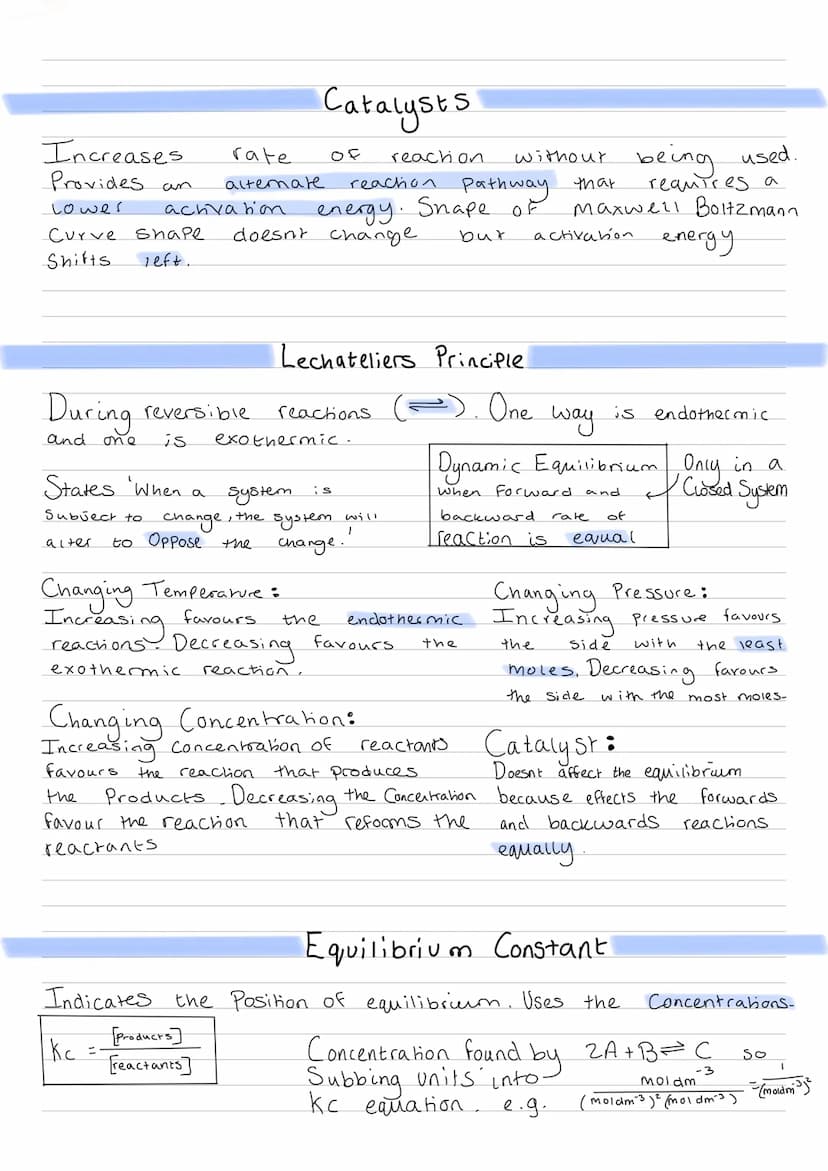 Catalysts
Increases rate of reaction without being used.
Provides an alternate reaction pathway that requires a
lower activation energy. Shape of Maxwell Boltzmann
Curve shape doesnt change but activation energy
Shifts left.
Lechateliers Principle
During reversible reactions (⇌). One way is endothermic
and one is exothermic.
States 'When a system is
Subject to change, the system will
alter to Oppose the change.'
Dynamic Equilibrium
When forward and
backward rate of
reaction is equal
Only in a
Closed System
Changing Temperature:
Increasing favours the endothermic
reactions. Decreasing favours the
exothermic reaction.
Changing Pressure:
Increasing pressure favours
the side with the least
moles. Decreasing favours
the side with the most moles.
Changing Concentration:
Increasing concentration of reactants
favours the reaction that produces
the Products. Decreasing the Concentration
favour the reaction that refoams the
reactants
Catalyst:
Doesnt affect the equilibrium
because effects the forwards
and backwards reactions
equally.
Equilibrium Constant
Indicates the Position of equilibrium. Uses the Concentrations.
Kc = [Products] / [reactants]
Concentration found by 2A + B ⇌ C so
Subbing units into
Kc equation. e.g. moldm⁻³ / (moldm⁻³)² (moldm⁻³) = 1 / (moldm⁻³)²